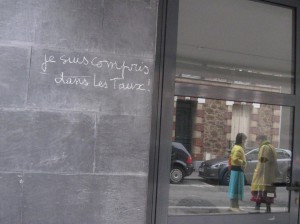 je suis compris
dans les Taux !